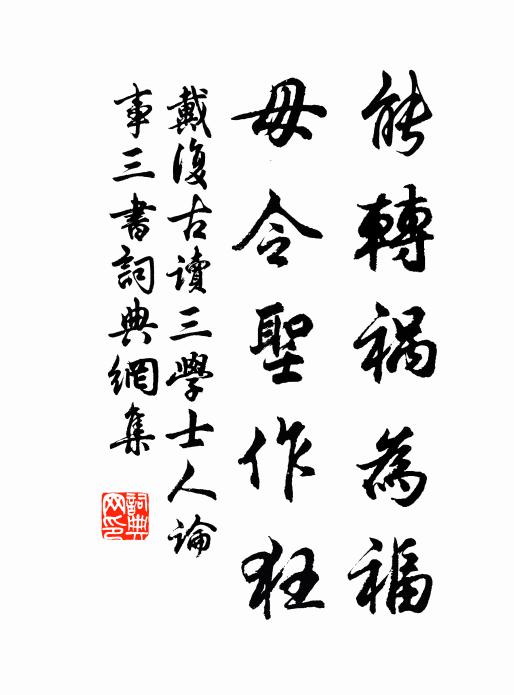 能轉禍為福
毋令聖作狂
戴復古讀三學士人論
事三書詞典網集
詞典
网印